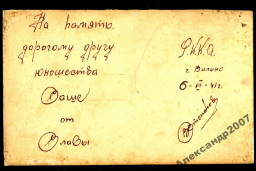 На память
дорогому другу
юношества
Ваще
от
Славы
Р.К.К.А
г. Вильно
6-VI-41г.
Александр2007